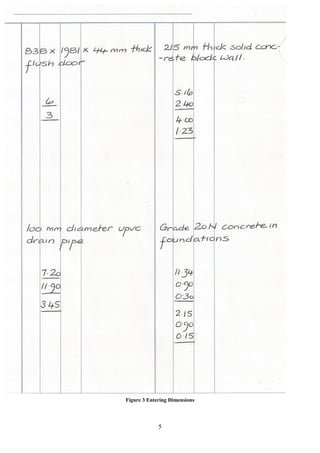 838 x 1981 x 44 mm thick
flush door
6
3
215 mm thick solid conc-
-rete block wall.
5.16
2.40
4.00
1.23
100 mm diameter upvc
drain pipe
7.20
11.90
3.45
Grade 20N concrete in
foundations
11.34
0.90
0.30
2.15
0.90
0.15
Figure 3 Entering Dimensions
5